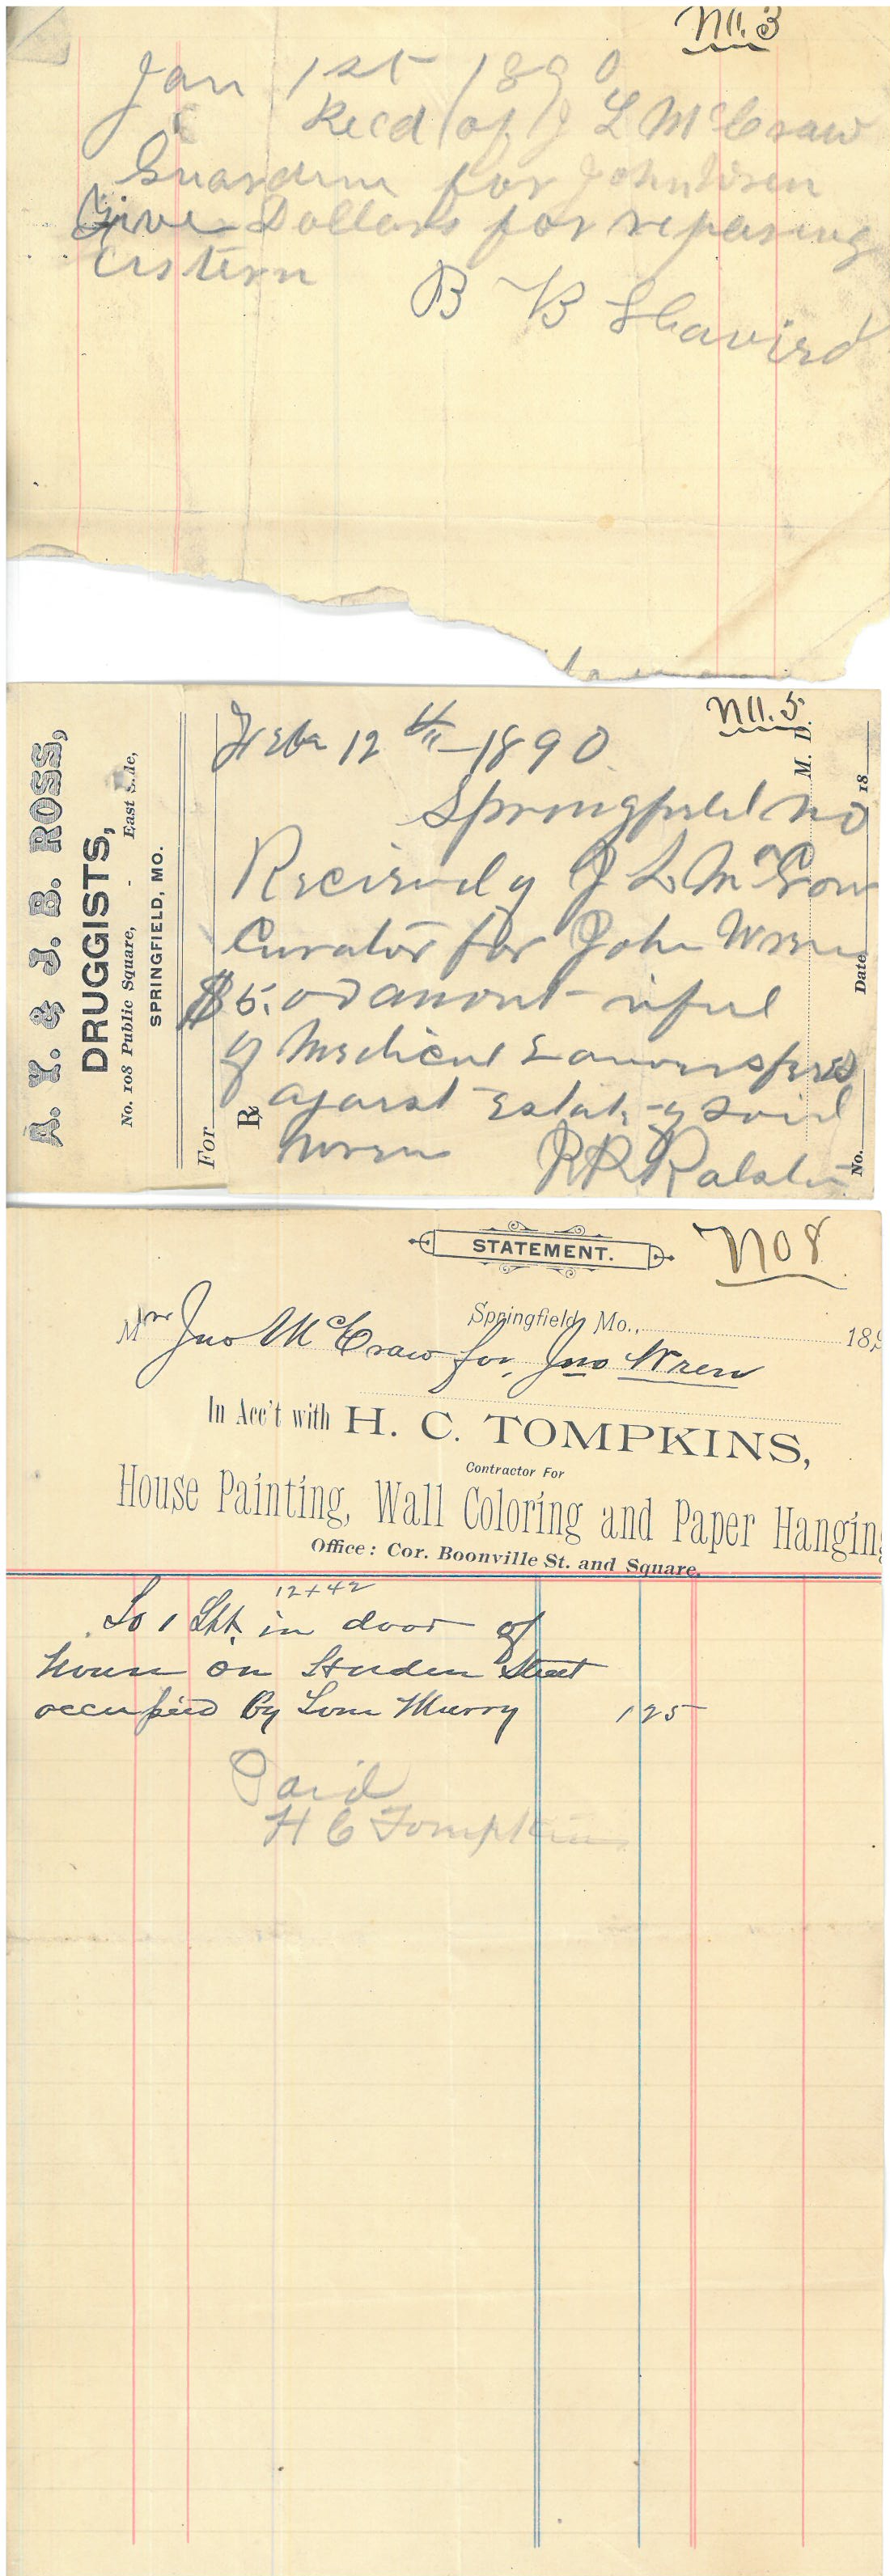 No. 3
Jan 1st 1890
Recd of J L McCraw
Guardian for John Wren
Five Dollars for reparing
Cistern
B B
No. 5
A. Y. & J. B. ROSS,
DRUGGISTS,
No. 108 Public Square, - East Side,
SPRINGFIELD, MO.
For
R
M. D.
18
Date
No.
12th 1890
Springfield Mo
J L McCraw
Curator for John Wren
$5.00 amont in full
of Medical
against Estate of Said
Wren R R Ralston
STATEMENT.
No 8
Springfield, Mo., 189
Mr Jno McCraw for, Jno Wren
In Acc't with H. C. TOMPKINS,
Contractor For
House Painting, Wall Coloring and Paper Hanging
Office: Cor. Boonville St. and Square.
12+42
To 1 Lht. in door of
house on Street
occupied By Tom Murry 1 25
Paid
H C Tompkins